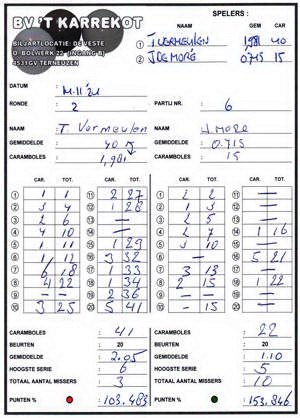 BV 'T KARREKOT
BILJARTLOCATIE: DE VESTE
O. BOLWERK 22 (INGANG B)
4531GV TERNEUZEN
SPELERS :
NAAM GEM CAR
1 T VERMEULEN 1,981 40
2 J DE MORÉ 0.715 15
DATUM :
RONDE : 2 PARTIJ NR. : 6
NAAM : T. Vermeulen NAAM : J. MORE
GEMIDDELDE : 40 GEMIDDELDE : 0.715
CARAMBOLES : 1,981 CARAMBOLES : 15
CAR. TOT. CAR. TOT. CAR. TOT. CAR. TOT.
1 1 1 11 2 27 1 2 2 11 —
2 3 4 12 1 28 2 1 3 12 —
3 2 6 13 — 3 2 5 13 —
4 4 10 14 — 4 2 7 14 1 16
5 1 11 15 1 29 5 3 10 15 —
6 1 12 16 3 32 6 — 16 5 21
7 6 18 17 1 33 7 3 13 17 —
8 4 22 18 1 34 8 2 15 18 1 22
9 — — 19 2 36 9 — 19 —
10 3 25 20 5 41 10 — 15 20 —
CARAMBOLES : 41 CARAMBOLES : 22
BEURTEN : 20 BEURTEN : 20
GEMIDDELDE : 2.05 GEMIDDELDE : 1.10
HOOGSTE SERIE : 6 HOOGSTE SERIE : 5
TOTAAL AANTAL MISSERS : 3 TOTAAL AANTAL MISSERS : 10
PUNTEN % : 103.483 PUNTEN % : 153.846